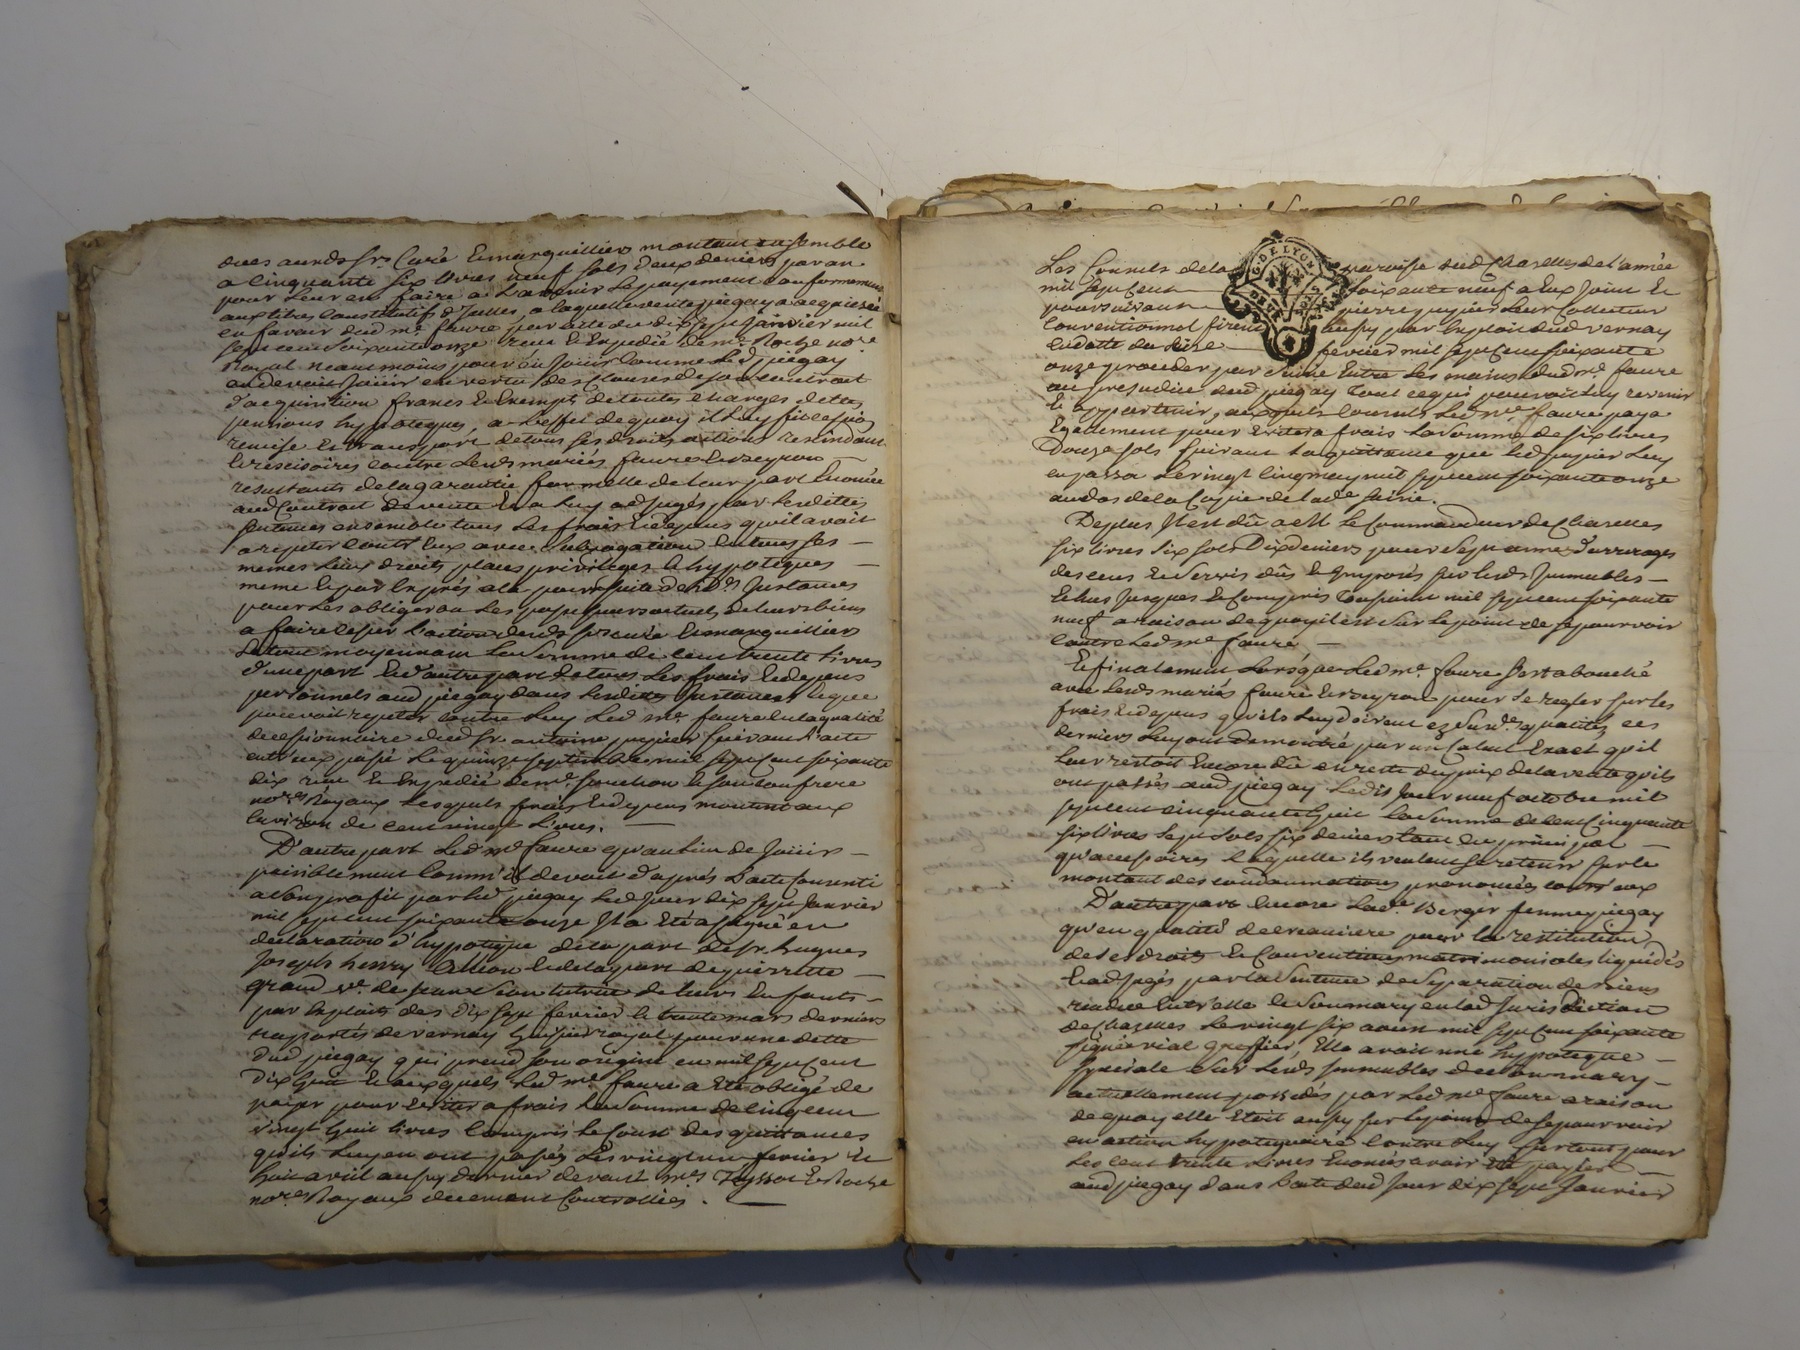 dues auxds srs Curé Et marguilliers montant ensemble
a Cinquante six livres neuf sols deux deniers par an
pour leur en faire a L'avenir Le payement Conformement
aux titres Constitutifs d'Icelles, a laquelle vente piegay a acquiescé
en faveur dud me. faure par acte du dix sept Janvier mil
sept cent soixante onze recu Et Expedié de me. Roche nore
Royal neanmoins pour En Jouir Comme Led piegay
en devoit Jouir en vertu des Clauses de son contrat
d'acquisition francs Et Exempts de toutes Charges dettes
pensions hypoteques, a L'effet de quoy il Luy fit cession
remise Et transport de tous ses droits actions rescindant
Et rescisoires contre Lesds mariés faure Et Veyron
resultants de la garantie formelle de leur part Enoncée
aud Contrat de vente Et a Luy adjugés par Lesdittes
sentences ensemble tous Les frais Et depens qu'il avoit
a repeter Contr'Eux avec Subrogation En tous ses
memes Lieu droits places privileges Et hypoteques
meme Et par Exprés a la poursuitte desds. Instances
pour Les obliger ou Les possesseurs actuels de leurs biens
a faire Cesser L'action desds srs curé Et marguilliers
Le tout moyennant La Somme de Cent trente Livres
d'une part Et d'autre part de tous Les frais Et depens
personnels aud piegay dans Lesdittes Instances Et que
pouvoit repeter contre Luy Led me. faure En la qualité
de cessionnaire dud sr. antoine pupier suivant L'acte
entr'eux passé Le quinze septembre mil sept cent soixante
dix recu Et Expedié de me. ponchon Et son Confrere
nores Royaux Lesquels frais Et depens montent aux
Environ de cent vingt Livres.
D'autre part Led me faure qu'au lieu de Joüir
paisiblement Comm'il devoit d'aprés L'acte Consenti
a Son profit par led piegay Led Jour dix sept Janvier
mil sept cent soixante onze Il a Eté assigné en
declaration d'hypoteque de la part de sr. hugues
Joseph henry Et de la part de pierrette
grand ve. de tutrice de leurs Enfants
par Exploits des dix sept fevrier Et trente mars derniers
rapportés de vernay huissier royal pour une dette
dud piegay qui prend son origine en mil sept cent
Dix huit Et auxquels Led me. faure a Eté obligé de
payer pour Eviter a frais La Somme de Cinq cent
vingt huit livres Compris Le Coust des quittances
qu'ils Luy en ont passés Les vingt un fevrier Et
huit avril aussy dernier devant mes Teyssot Et Roche
nores Royaux deuement Controllées.
Les Consuls de la paroisse dud Chazelles de L'année
mil sept cent soixante neuf a Eux Joint Et
poursuivant pierre pupier Leur Collecteur
Conventionnel firent aussy par Exploit dud vernay
En datte du seize fevrier mil sept cent soixante
onze proceder par saisie Entre Les mains dud me. faure
au prejudice dud piegay Tout ce qui pouvoit Luy revenir
Et appartenir, auxquels Consuls Led me faure paya
Egalement pour Eviter a frais La Somme de six livres
Douze sols suivant La quittance que led pupier Luy
en passa Le vingt Cinq may mil sept cent soixante onze
au dos de la Copie de lade saisie.
De plus Il est dû a M Le Commandeur de Chazelles
six livres six sols Dix deniers pour Sept années d'arrerages
des cens Et Servis dûs Et Imposés sur lesds Immeubles
Echus Jusques Et Compris toussaint mil sept cent soixante
neuf a raison de quoy il est sur le point de se pourvoir
contre Led me faure
Et finalement Lorsque Led me. faure S'est abouché
avec Lesds mariés faure Et Veyron pour se regler sur les
frais Et depens qu'ils Luy doivent ez Susds. qualités ces
derniers Luy ont Demontré par un Calcul Exact qu'il
Leur restoit Encore dû en reste du prix de la vente qu'ils
ont passés aud piegay Led Jour neuf octobre mil
sept cent cinquante huit La Somme de Cent Cinquante
six livres sept sols six deniers tant En principal
qu'accessoires Laquelle ils veulent se retenir sur le
montant des condamnations prononcées contr'eux
D'autre part Encore Lade. Berger femme piegay
qu'en qualité de creanciere pour la restitution
de ses droits Et Conventions matrimoniales liquidés
Et adjugés par la Sentence de Separation de biens
rendue Entr'elle Et Son mary en lad Jurisdiction
de Chazelles Le vingt six aoust mil sept cent soixante
signée vial greffier, Elle avoit une hypoteque
speciale Sur Lesds Immeubles de Son mary
actuellement possedés par Led me faure a raison
de quoy elle Etoit aussy sur le point de se pourvoir
en action hypotequaire Contre Luy surtout pour
Les Cent trente Livres Enoncés avoir Eté payés
aud piegay dans L'acte dud Jour dix sept Janvier
G. DE LYON
DEUX SOLS